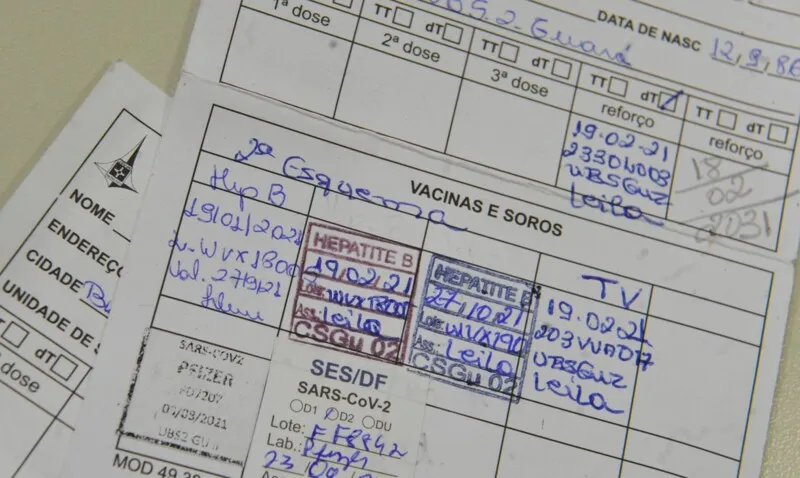 UBS 2 Guará
DATA DE NASC 12,9,86
TT dT
1ª dose
TT dT
2ª dose
TT dT
3ª dose
TT dT
reforço
19.02.21
UBSGU2
Leila
TT dT
reforço
18
02
2031
VACINAS E SOROS
2ª Esquema
Hep B
19/01/2021
HEPATITE B
19,02,21
Lote:
Ass.: Leila
CSGu 02
HEPATITE B
27,10,21
Lote: WVX190
Ass.: Leila
CSGu 02
TV
19.02.21
UBSGU2
Leila
SARS-COV2
PFIZER
UBS2 GU
SES/DF
SARS-CoV-2
D1 D2 DU
Lote:
Lab.: Pfizer
MOD 49.28
NOME
ENDEREÇO
CIDADE
UNIDADE DE S
TT dT
dose